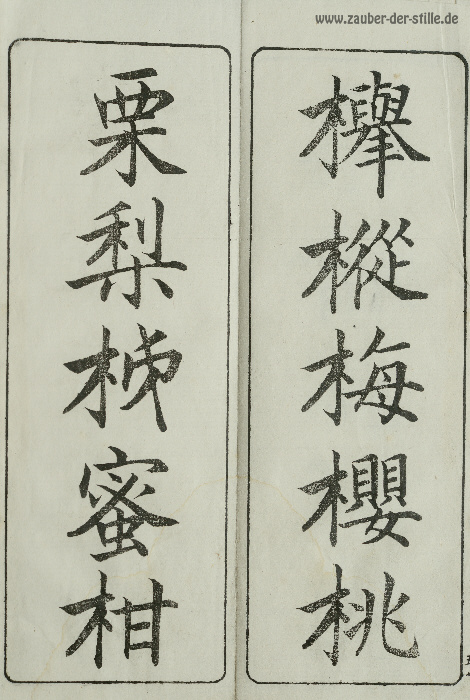 www.zauber-der-stille.de
欅樅梅櫻桃
栗梨柹蜜柑